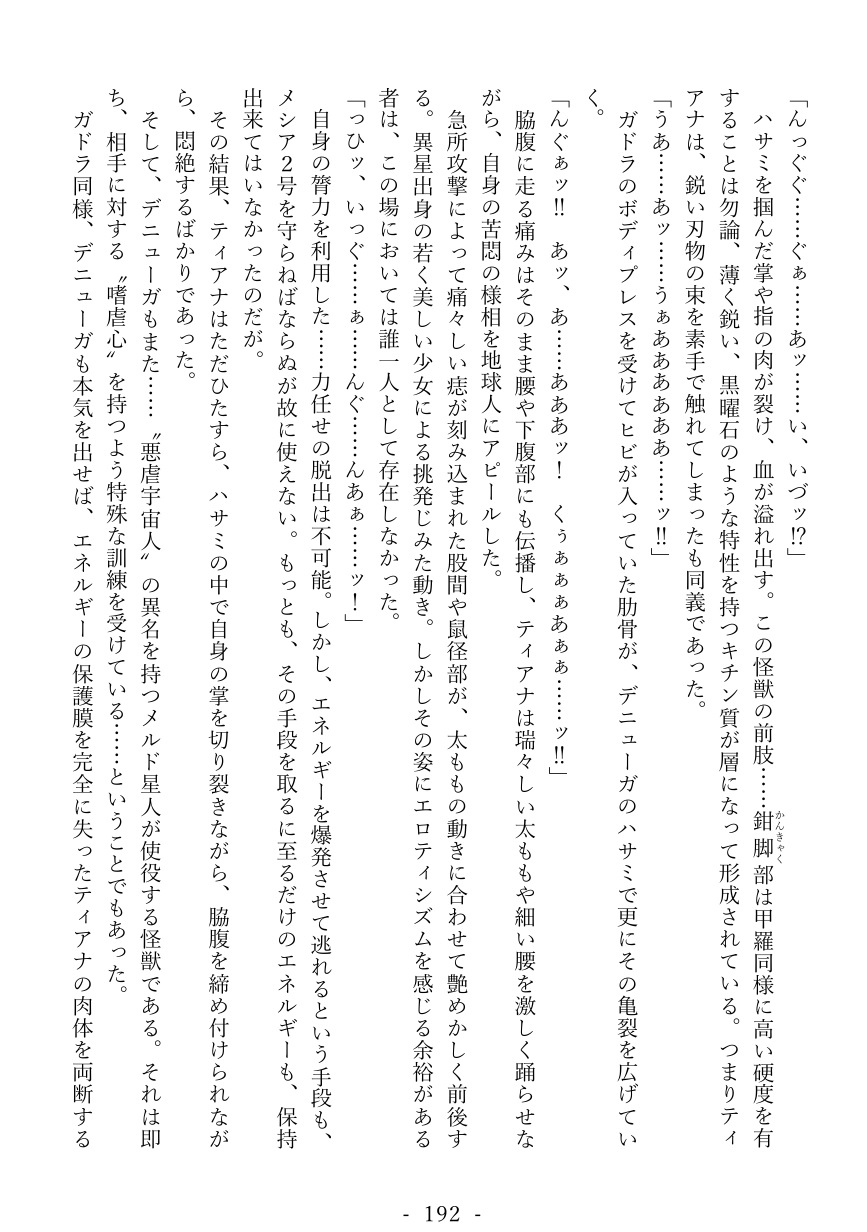 「んっぐぐ……ぐぁ……あッ……い、いづッ!?」
　ハサミを掴んだ掌や指の肉が裂け、血が溢れ出す。この怪獣の前肢……鉗脚部は甲羅同様に高い硬度を有
かんきゃく
することは勿論、薄く鋭い、黒曜石のような特性を持つキチン質が層になって形成されている。つまりティ
アナは、鋭い刃物の束を素手で触れてしまったも同義であった。
「うあ……あッ……うぁああああああ……ッ!!」
　ガドラのボディプレスを受けてヒビが入っていた肋骨が、デニューガのハサミで更にその亀裂を広げてい
く。
「んぐぁッ!!　あッ、あ……あああッ！　くぅぁぁぁあぁぁ……ッ!!」
　脇腹に走る痛みはそのまま腰や下腹部にも伝播し、ティアナは瑞々しい太ももや細い腰を激しく踊らせな
がら、自身の苦悶の様相を地球人にアピールした。
　急所攻撃によって痛々しい痣が刻み込まれた股間や鼠径部が、太ももの動きに合わせて艶めかしく前後す
る。異星出身の若く美しい少女による挑発じみた動き。しかしその姿にエロティシズムを感じる余裕がある
者は、この場においては誰一人として存在しなかった。
「っひッ、いっぐ……ぁ……んぐ……んあぁ……ッ！」
　自身の膂力を利用した……力任せの脱出は不可能。しかし、エネルギーを爆発させて逃れるという手段も、
メシア２号を守らねばならぬが故に使えない。もっとも、その手段を取るに至るだけのエネルギーも、保持
出来てはいなかったのだが。
　その結果、ティアナはただひたすら、ハサミの中で自身の掌を切り裂きながら、脇腹を締め付けられなが
ら、悶絶するばかりであった。
　そして、デニューガもまた……〝悪虐宇宙人〟の異名を持つメルド星人が使役する怪獣である。それは即
ち、相手に対する〝嗜虐心〟を持つよう特殊な訓練を受けている……ということでもあった。
　ガドラ同様、デニューガも本気を出せば、エネルギーの保護膜を完全に失ったティアナの肉体を両断する
- 192 -